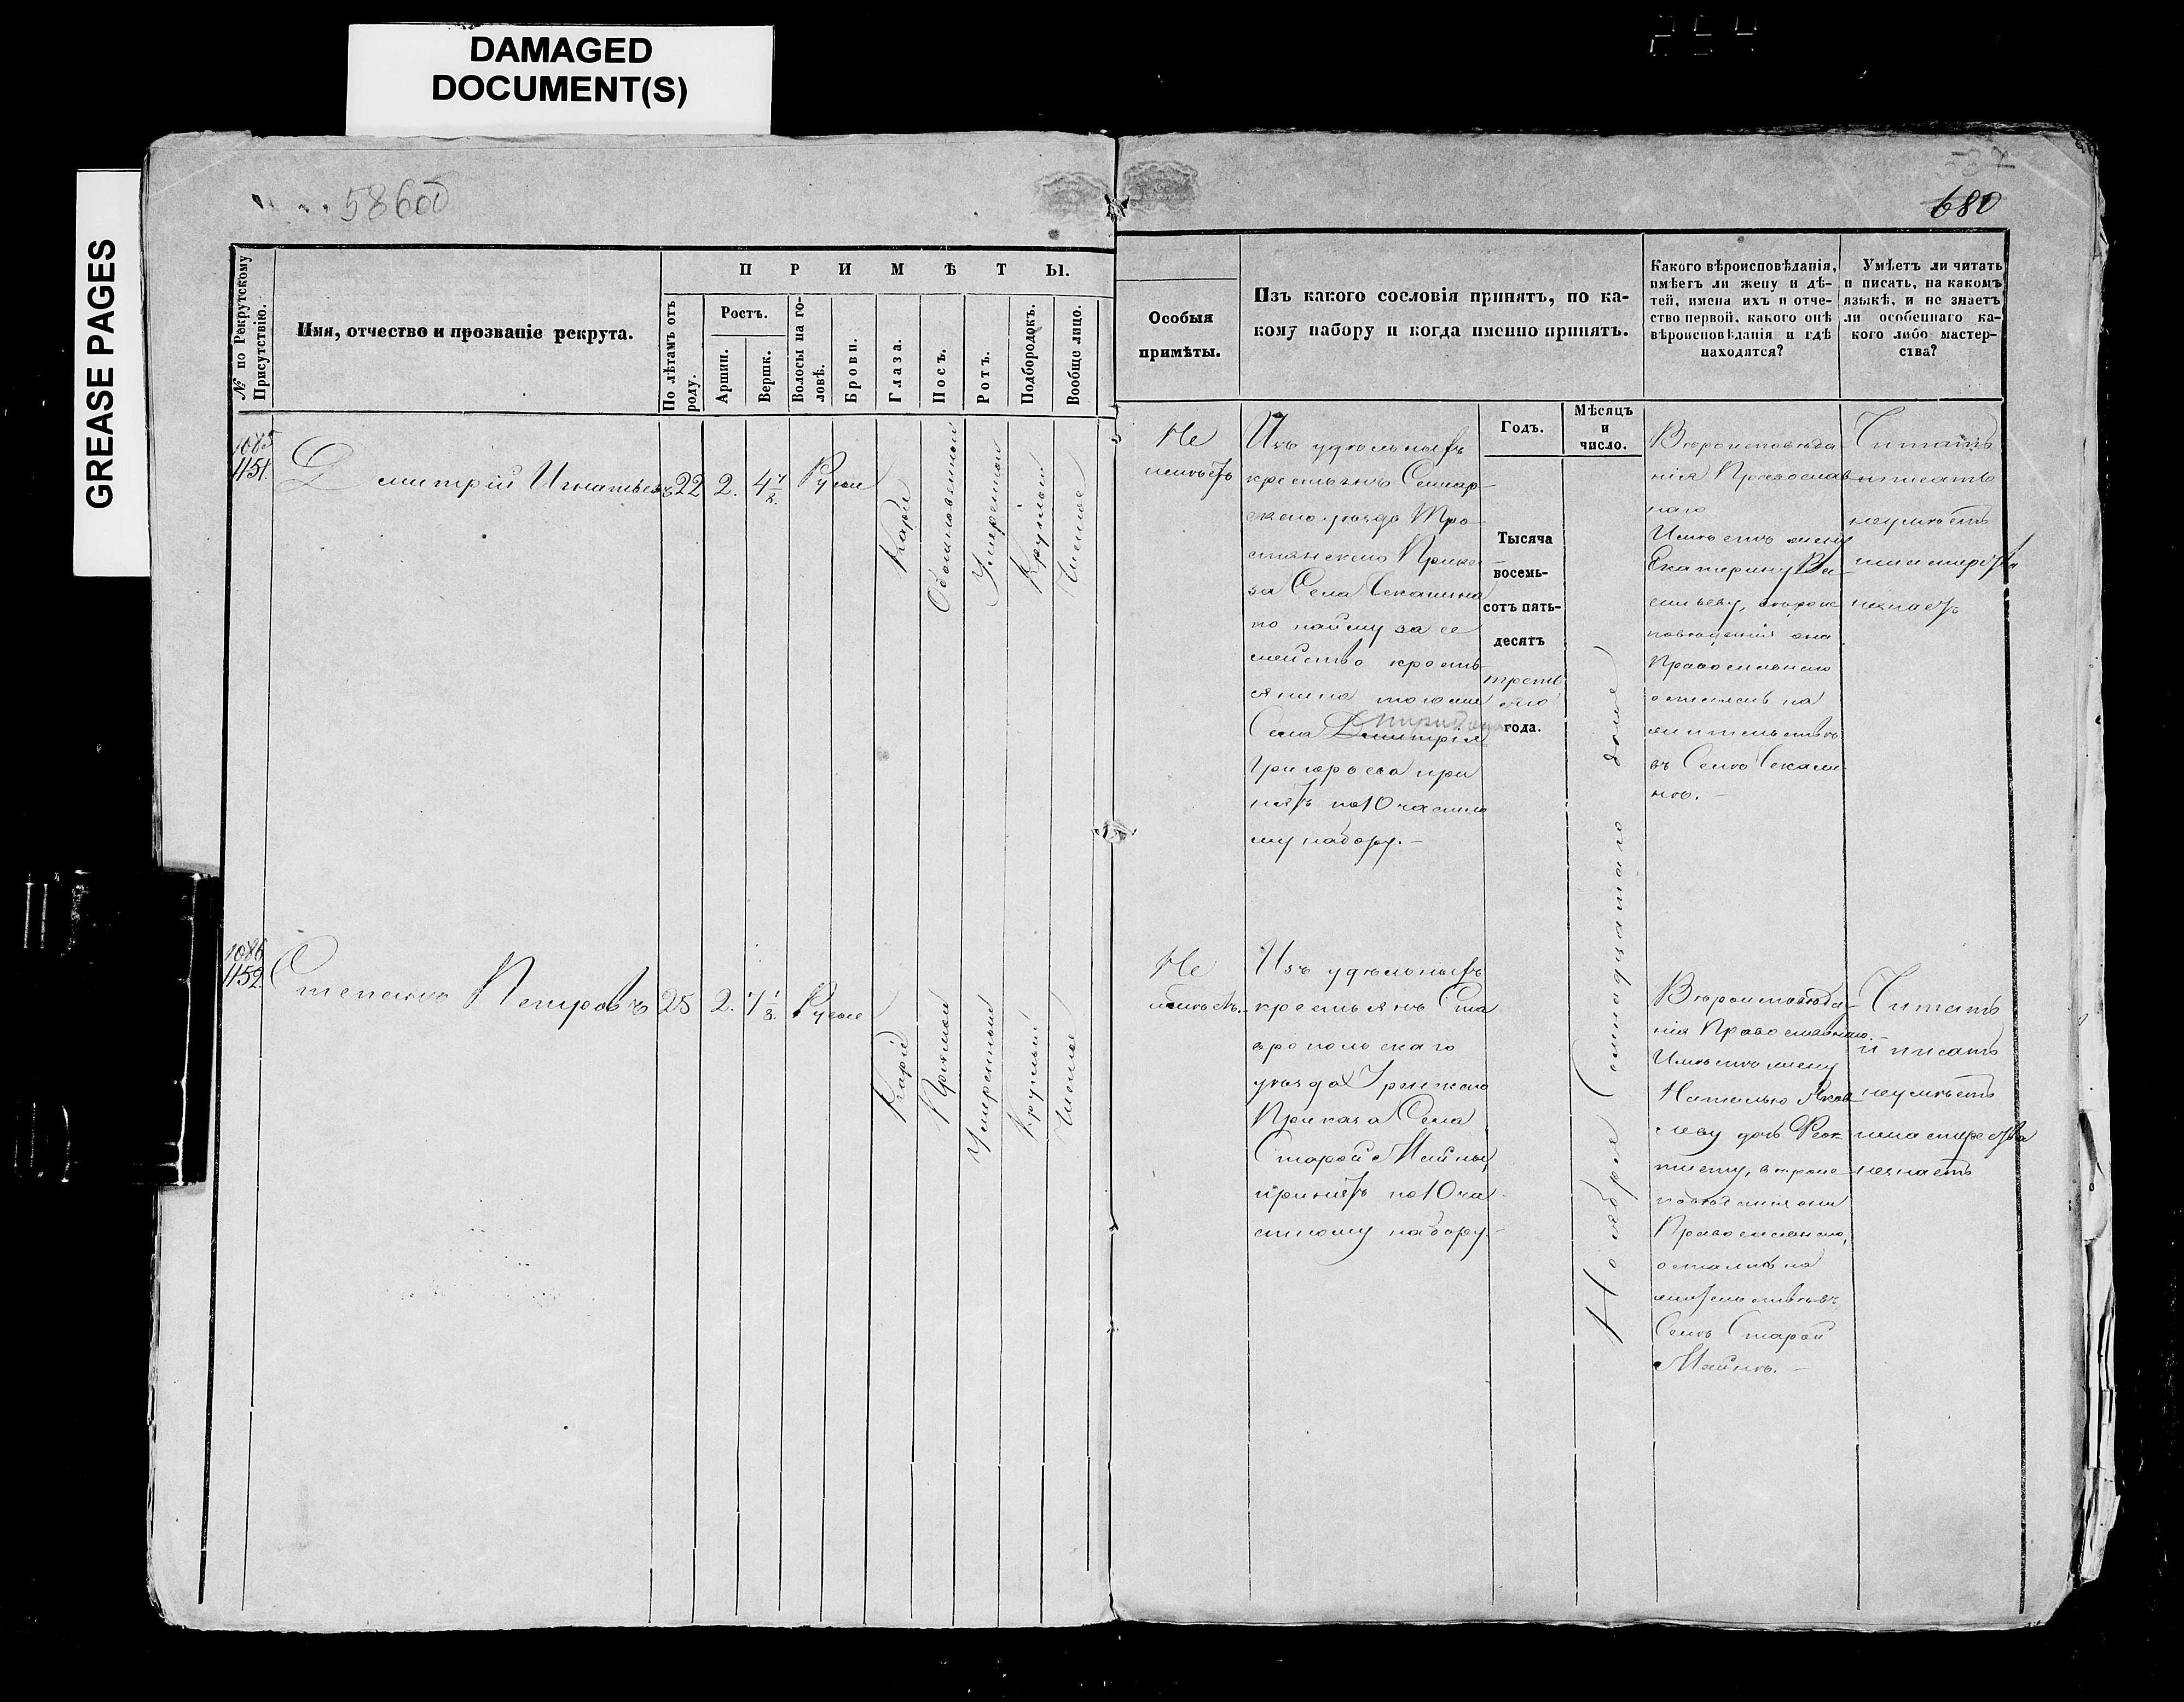 DAMAGED
DOCUMENT(S)
GREASE PAGES
680
№ по Рекрутскому
Присутствію.
Имя, отчество и прозваніе рекрута.
ПРИМѢТЫ.
По лѣтамъ отъ
роду.
Ростъ.
Аршин.
Вершк.
Волосы на го-
ловѣ.
Брови.
Глаза.
Носъ.
Ротъ.
Подбородокъ.
Вообще лицо.
Особыя
примѣты.
Изъ какого сословія принятъ, по ка-
кому набору и когда именно принятъ.
Какого вѣроисповѣданія,
имѣетъ ли жену и дѣ-
тей, имена ихъ и отче-
ство первой, какого онѣ
вѣроисповѣданія и гдѣ
находятся?
Умѣетъ ли читать
и писать, на какомъ
языкѣ, и не знаетъ
ли особеннаго ка-
кого либо мастер-
ства?
Годъ.
Мѣсяцъ
и
число.
1085
1151.
Дмитрій Игнатьевъ
22
2.
4 7/8.
Русые
Каріе
Обыкновенной
Умеренной
Круглый
Чистое
Не
имѣетъ
Изъ удѣльныхъ
крестьянъ Самар-
скаго уѣзда Тро-
стянскаго Прика-
за Села Чекалина
по найму за се
мейство кресть-
янина тогоже
Села Дмитрія
Спиридона
Григорьева при
нятъ по 10 частно
му набору. –
Тысяча
восемь-
сотъ пять-
десятъ
треть
яго
года.
Ноября Семнадцатаго дня
Вѣроисповѣда
нія Православ
наго
Имѣетъ жену
Екатерину Ва-
сильеву, вѣроис
повѣденія она
Православнаго
осталась на
жительствѣ
въ Селѣ Чекали-
нѣ. –
Читать
и писать
неумѣетъ
мастерства
незнаетъ
1086
1152.
Степанъ Петровъ
25
2.
7 1/8.
Русые
Каріе
Прямой
Умеренный
Круглый
Чистое
Не
имѣетъ.
Изъ удѣльныхъ
крестьянъ Ста
вропольскаго
уѣзда
Приказа Села
Старой Майны,
принятъ по 10 ча
стному набору. –
Вѣроисповѣда-
нія Православнаго.
Имѣетъ жену
Наталью Яков-
леву дочь Феок-
тисту, вѣроис-
повѣденія они
Православнаго,
остались на
жительствѣ въ
Селѣ Старой
Майнѣ. –
Читать
и писать
неумѣетъ
мастерства
незнаетъ